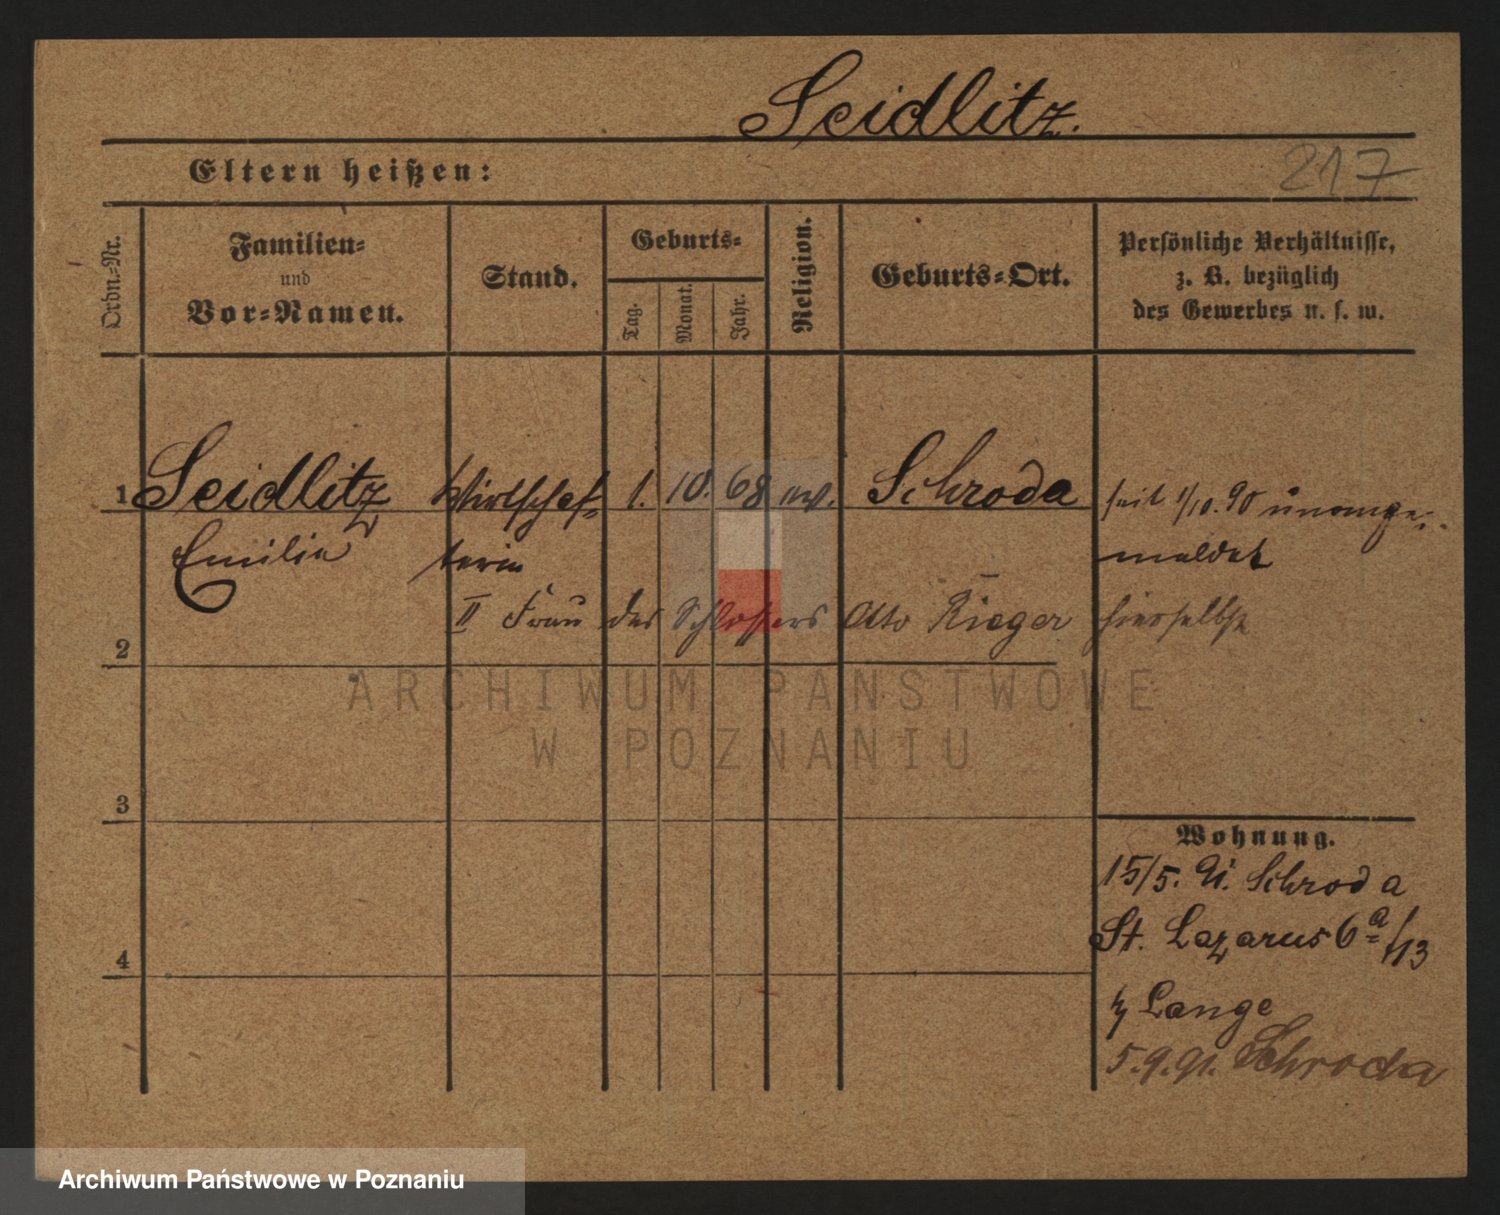 Seidlitz.
Eltern heißen:
217
Ordn.=Nr.
Familien=
und
Vor=Namen.
Stand.
Geburts=
Tag.
Monat.
Jahr.
Religion.
Geburts=Ort.
Persönliche Verhältnisse,
z. B. bezüglich
des Gewerbes u. s. w.
1 Seidlitz Wirtschaf= 1. 10. 68 ev. Schroda seit 1/10. 90 unange=
Emilie terin meldet
II Frau des Schlossers Otto Rieger hierselbst
2
ARCHIWUM PAŃSTWOWE
W POZNANIU
3
Wohnung.
15/5. 91. Schroda
St. Lazarus 6a/13
4
Lange
5.9.91. Schroda
Archiwum Państwowe w Poznaniu